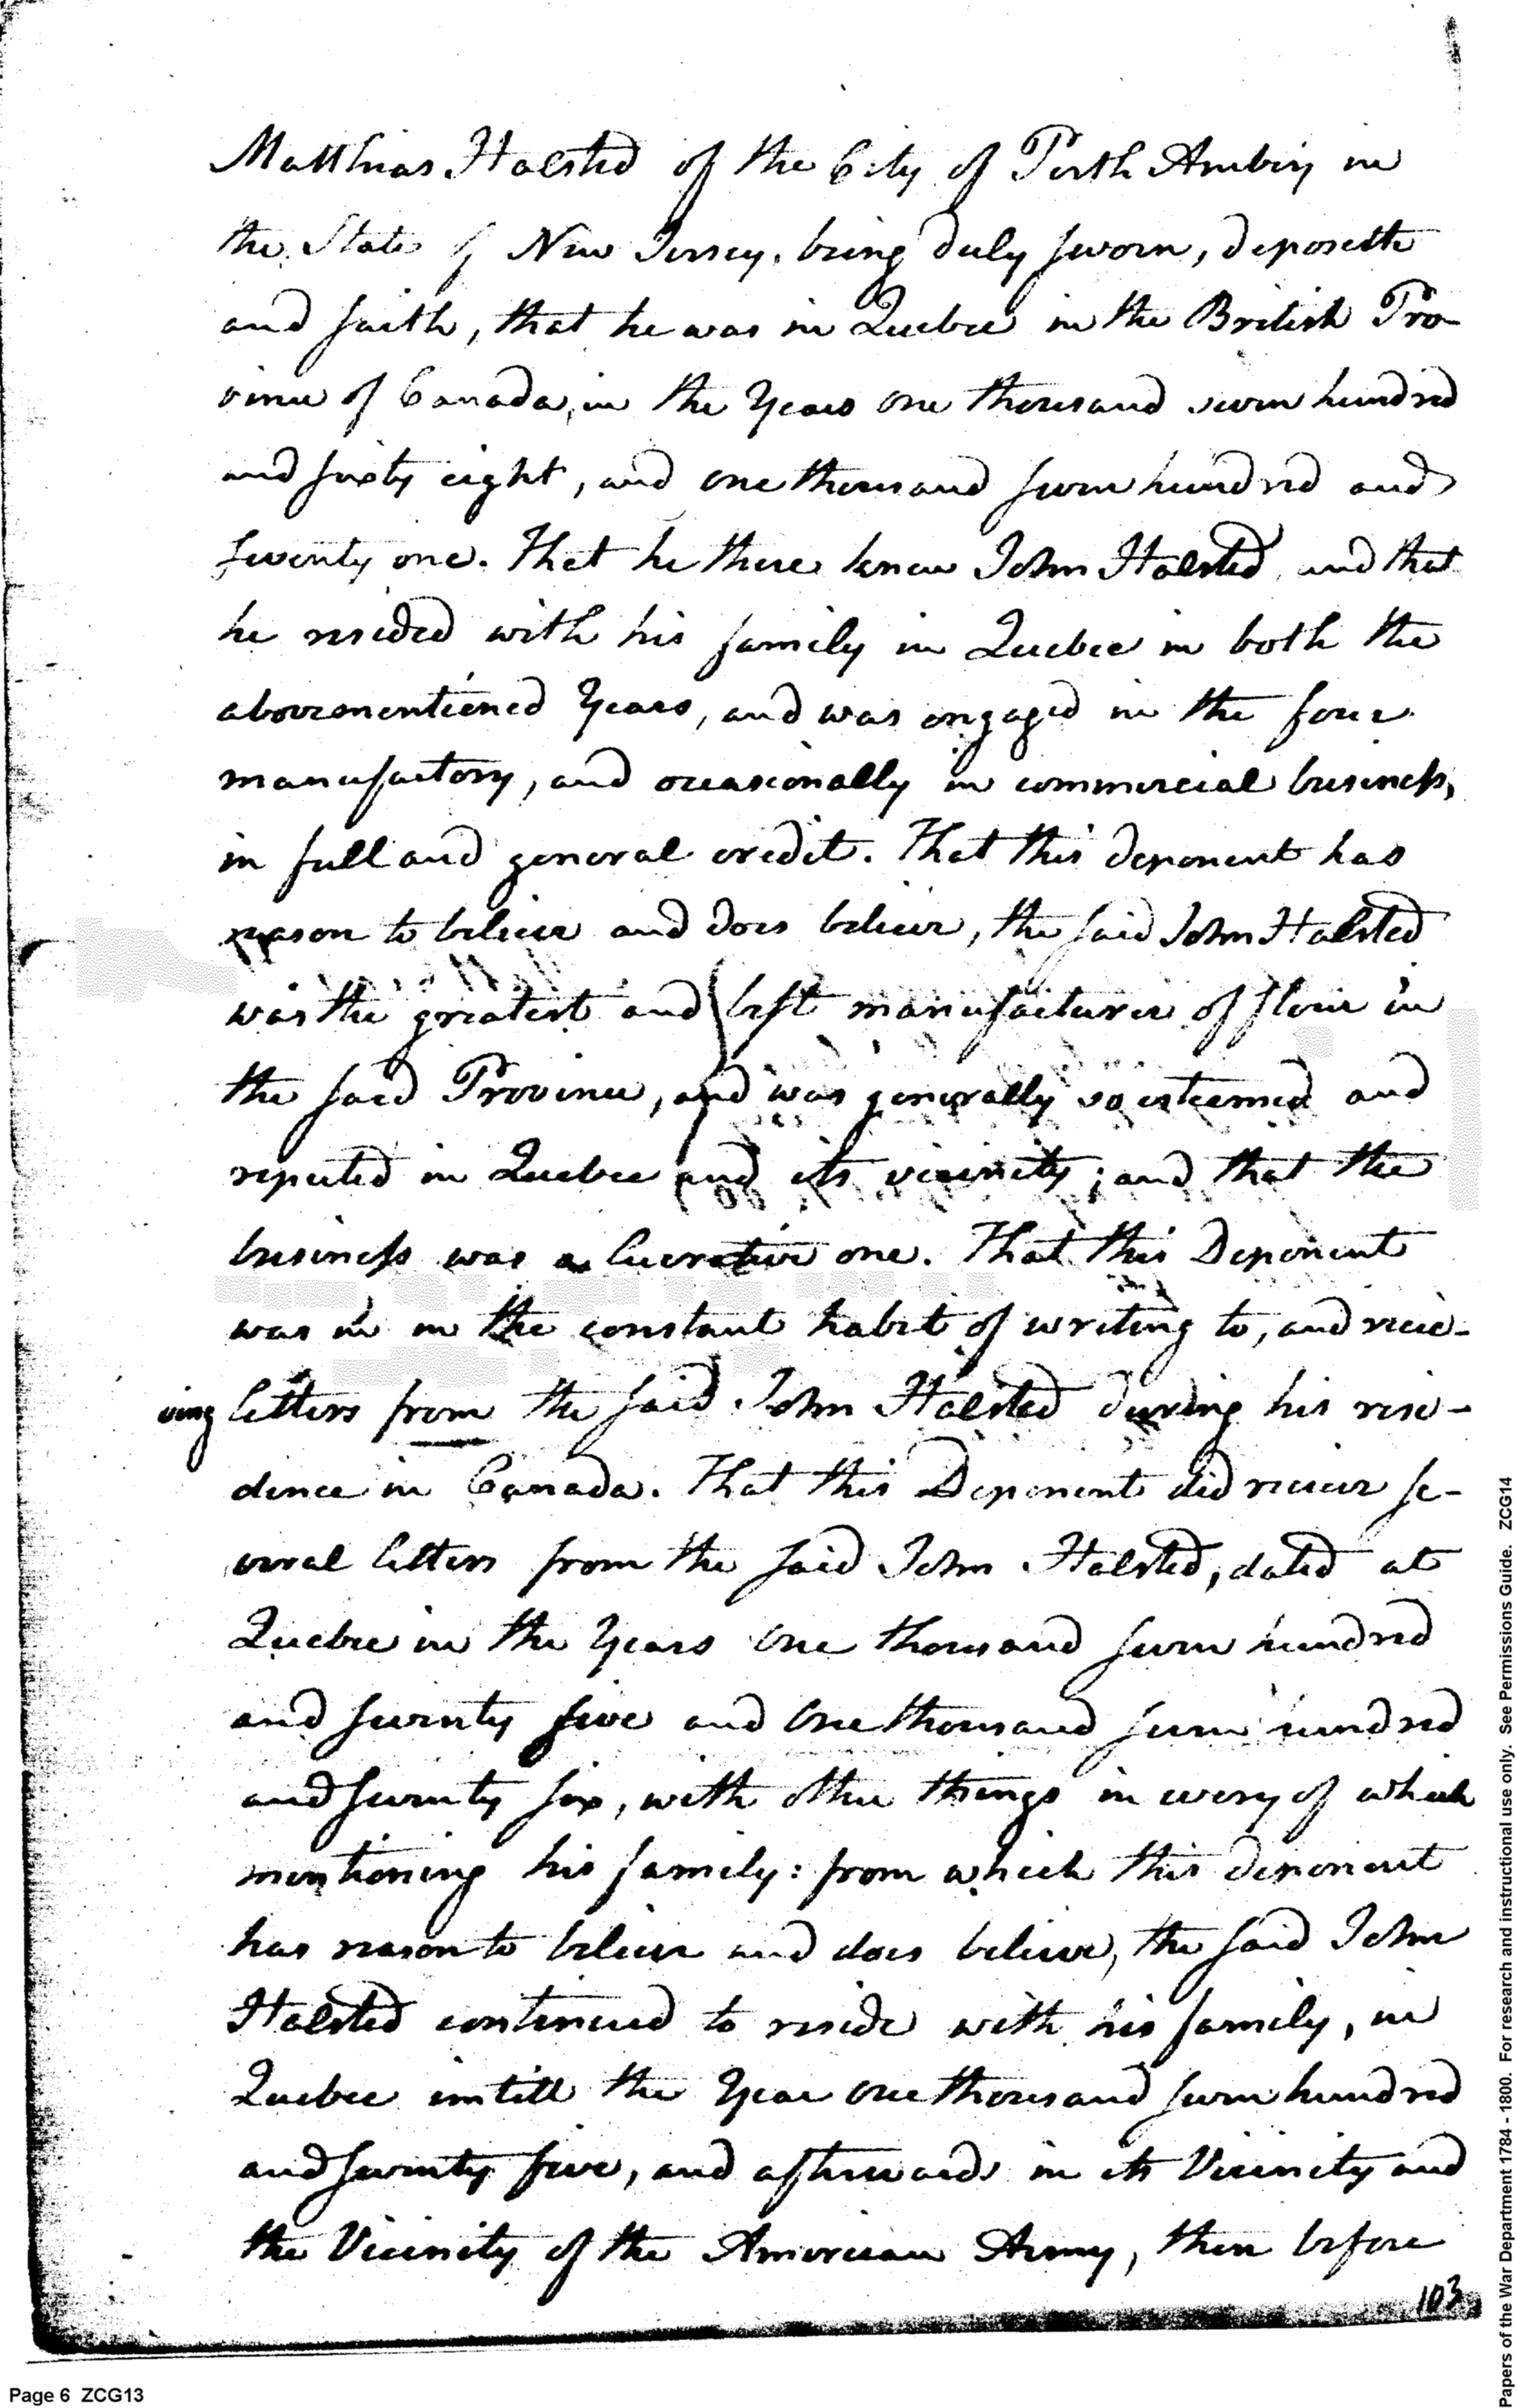 Matthias Halsted of the City of Perth Amboy in
the State of New Jersey, being duly sworn, deposeth
and saith, that he was in Quebec in the British Pro-
vince of Canada, in the Years one thousand seven hundred
and sixty eight, and one thousand seven hundred and
seventy one. That he there knew John Halsted, and that
he resided with his family in Quebec in both the
abovementioned Years, and was engaged in the flour
manufactory, and occasionally in commercial business,
in full and general credit. That this deponent has
reason to believe and does believe, the said John Halsted
was the greatest and best manufacturer of flour in
the said Province, and was generally so esteemed and
reputed in Quebec and its vicinity; and that the
business was a lucrative one. That this Deponent
was in the constant habit of writing to, and recie-
ving letters from the said John Halsted during his resi-
dence in Canada. That this Deponent did recieve se-
veral letters from the said John Halsted, dated at
Quebec in the Years One thousand seven hundred
and seventy five and One thousand seven hundred
and seventy six, with other things in every of which
mentioning his family: from which this deponent
has reason to believe and does believe, the said John
Halsted continued to reside with his family, in
Quebec untill the Year One thousand seven hundred
and seventy five, and afterwards in its Vicinity and
the Vicinity of the American Army, then before
103
Page 6 ZCG13
Papers of the War Department 1784 - 1800. For research and instructional use only. See Permissions Guide. ZCG14